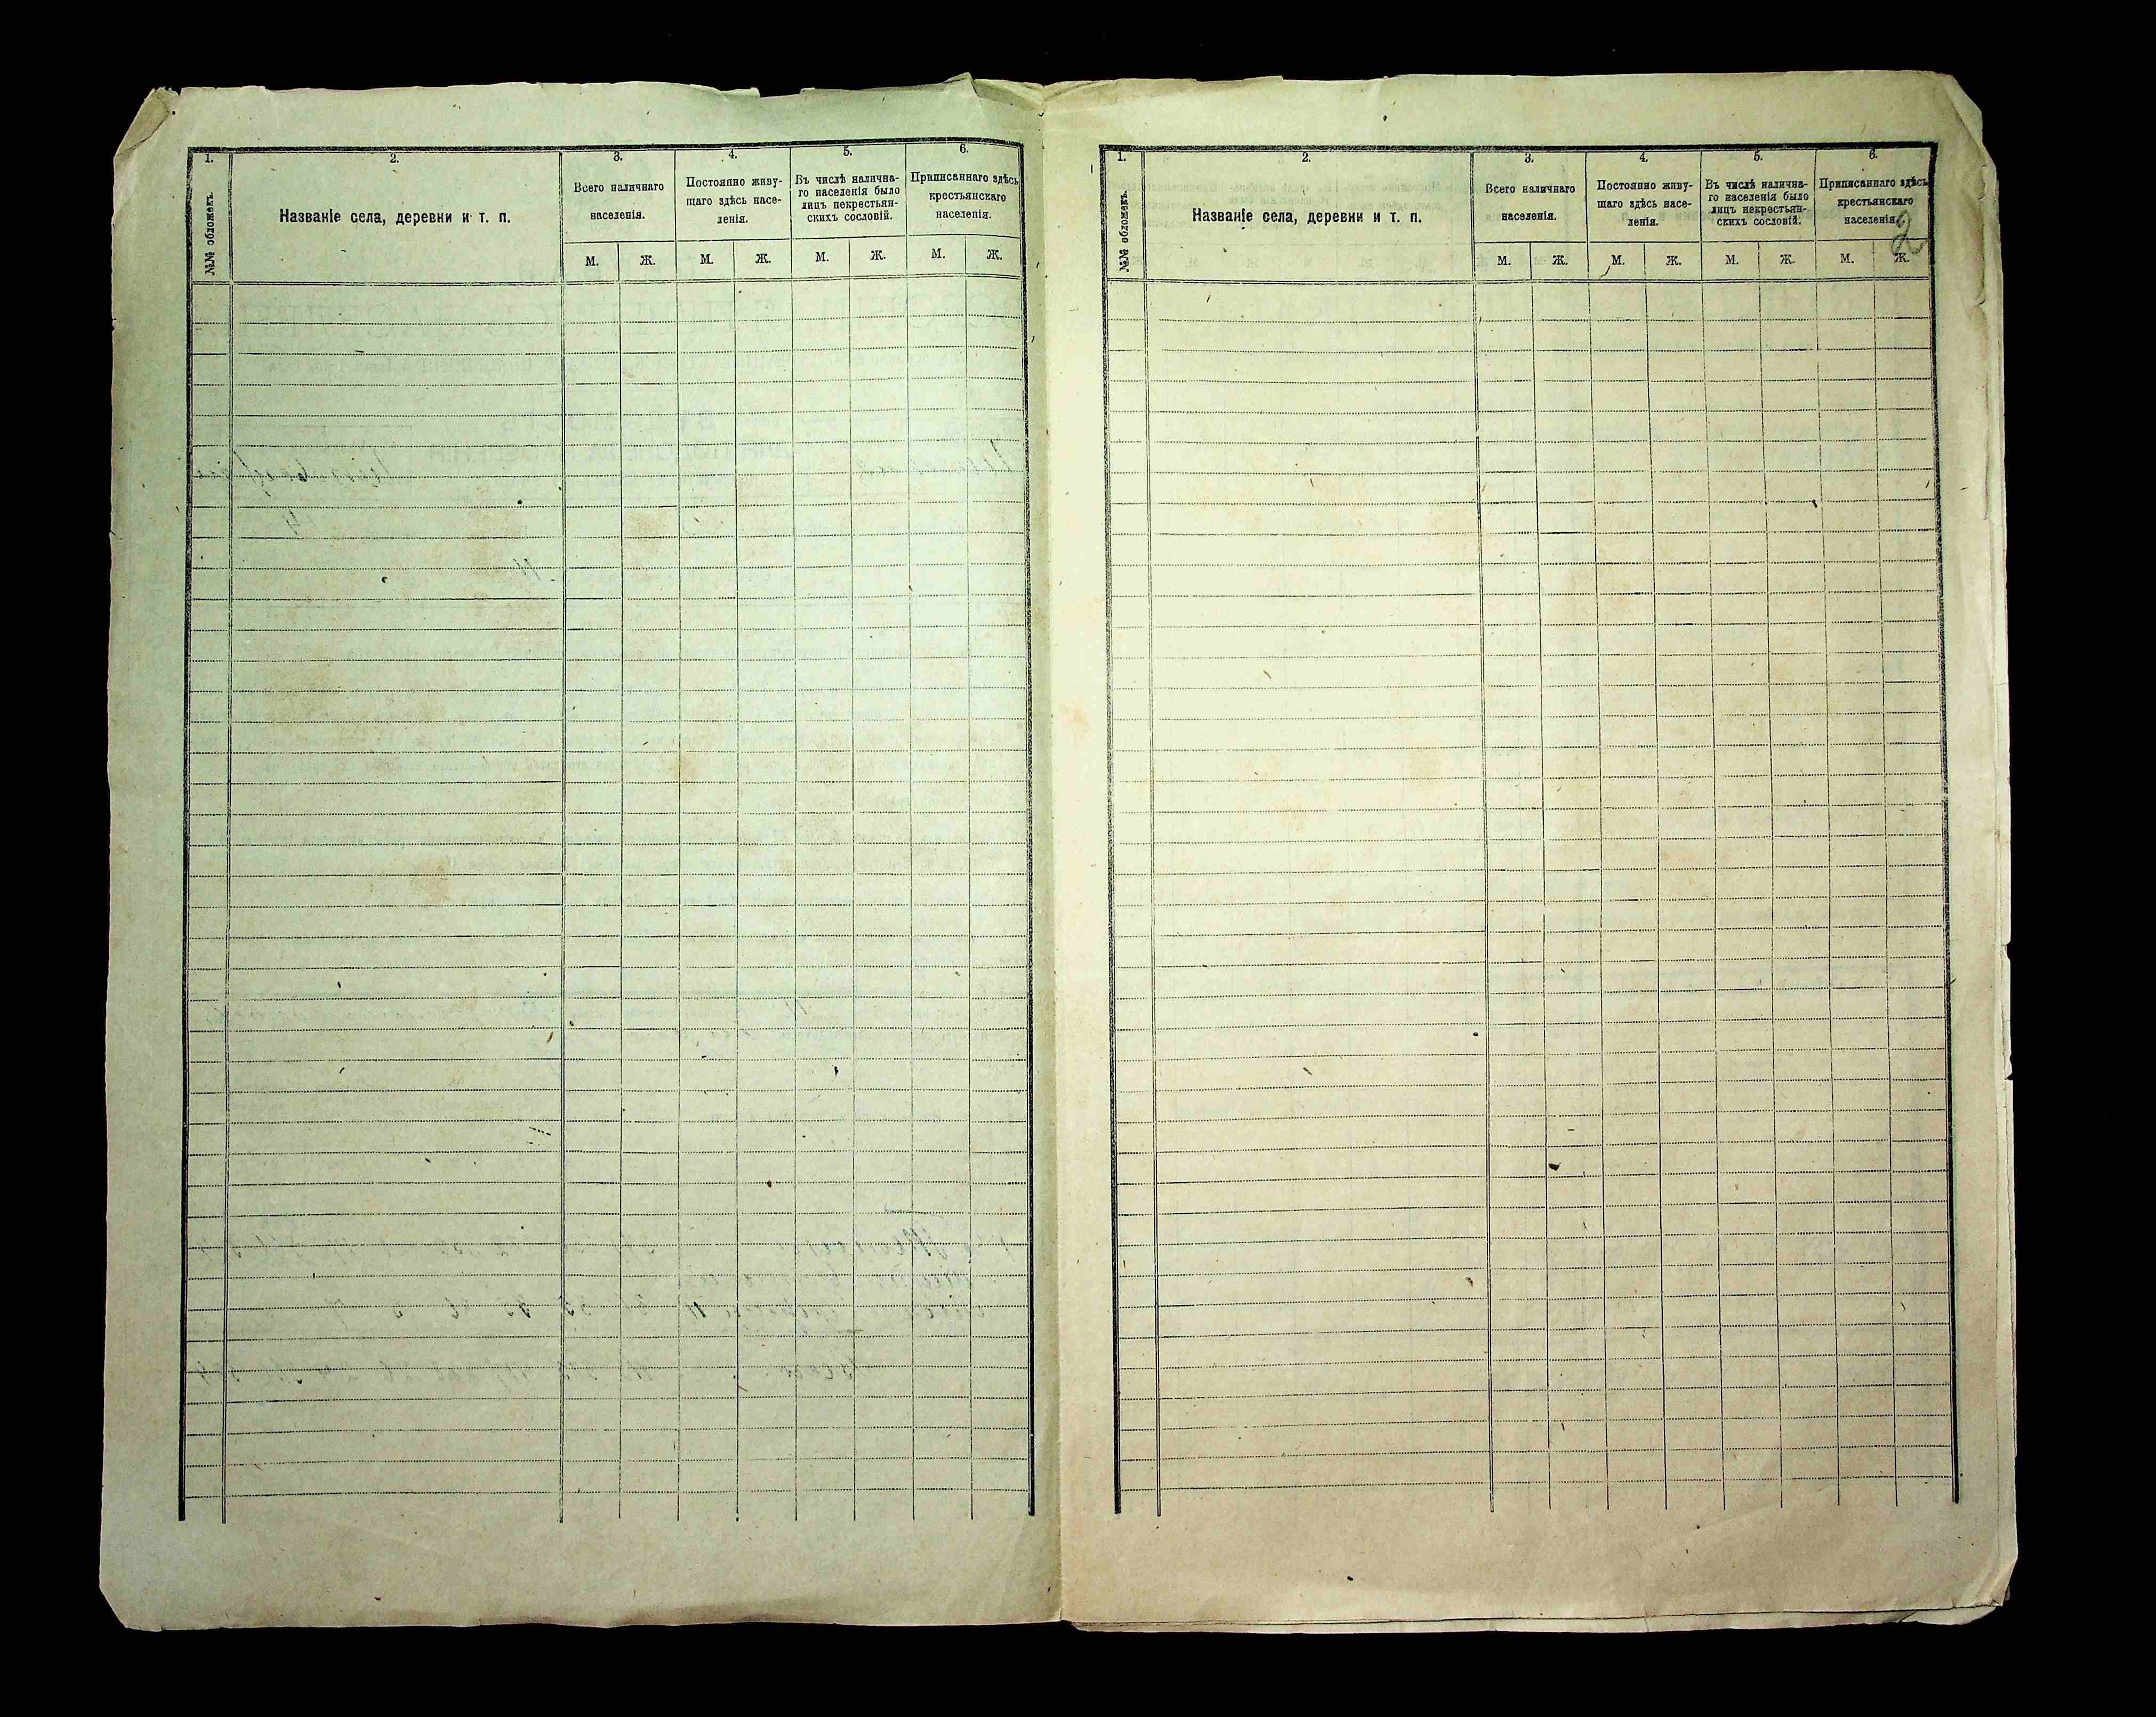 1.
2.
3.
4.
5.
6.
№№ обложекъ.
Названіе села, деревни и т. п.
Всего наличнаго
населенія.
Постоянно живу-
щаго здѣсь насе-
ленія.
Въ числѣ налична-
го населенія было
лицъ некрестьян-
скихъ сословій.
Приписаннаго здѣсь
крестьянскаго
населенія.
М.
Ж.
М.
Ж.
М.
Ж.
М.
Ж.
1.
2.
3.
4.
5.
6.
№№ обложекъ.
Названіе села, деревни и т. п.
Всего наличнаго
населенія.
Постоянно живу-
щаго здѣсь насе-
ленія.
Въ числѣ налична-
го населенія было
лицъ некрестьян-
скихъ сословій.
Приписаннаго здѣсь
крестьянскаго
населенія.
2
М.
Ж.
М.
Ж.
М.
Ж.
М.
Ж.